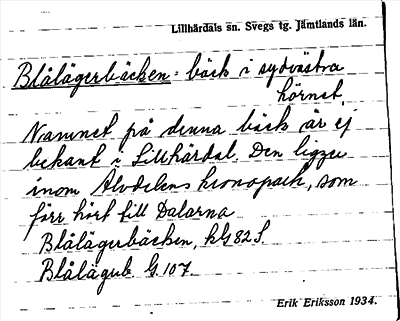 Lillhärdals sn. Svegs tg. Jämtlands län.
Blålägerbäcken = bäck i sydvästra
hörnet.
Namnet på denna bäck är ej
bekant i Lillhärdal. Den ligger
inom Älvdalens kronopark, som
förr hört till Dalarna
Blålägerbäcken, kG 82 S.
Blålägerb. G. 107
Erik Eriksson 1934.